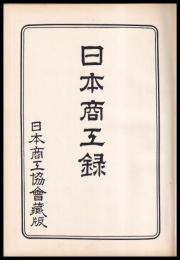 日本商工録
日本商工協會藏版